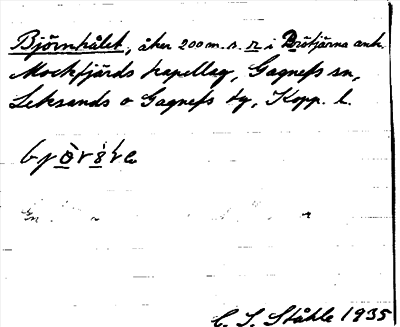 Björnhålet, åker 200 m. s. r i Brötjärna anh.
Mockfjärds kapellag, Gagnefs sn,
Leksands o Gagnefs tg, Kopp. l.
C. I. Ståhle 1935